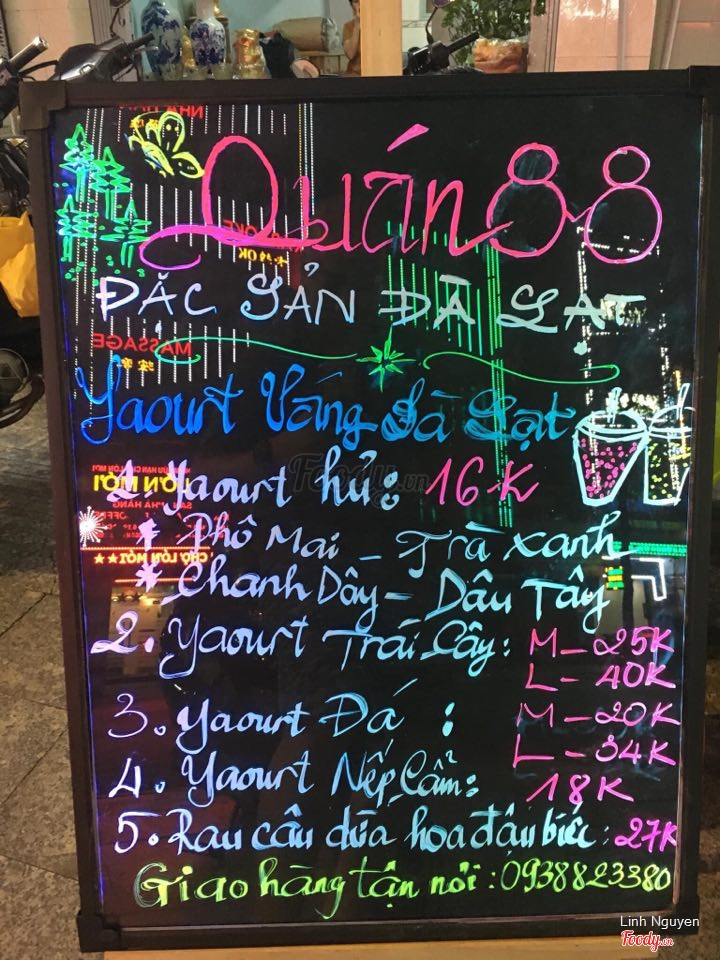 Quán 88
ĐẶC SẢN ĐÀ LẠT
MASSAGE
Yaourt Váng Đà Lạt
1. Yaourt hủ: 16K
* Phô Mai _ Trà Xanh
* Chanh Dây - Dâu Tây
2. Yaourt Trái Cây: M - 25K
L - 40K
3. Yaourt Đá : M - 20K
L - 34K
4. Yaourt Nếp Cẩm: 18K
5. Rau câu dừa hoa đậu biếc: 27K
Giao hàng tận nơi: 0938823380
Foody.vn
Linh Nguyen
Foody.vn